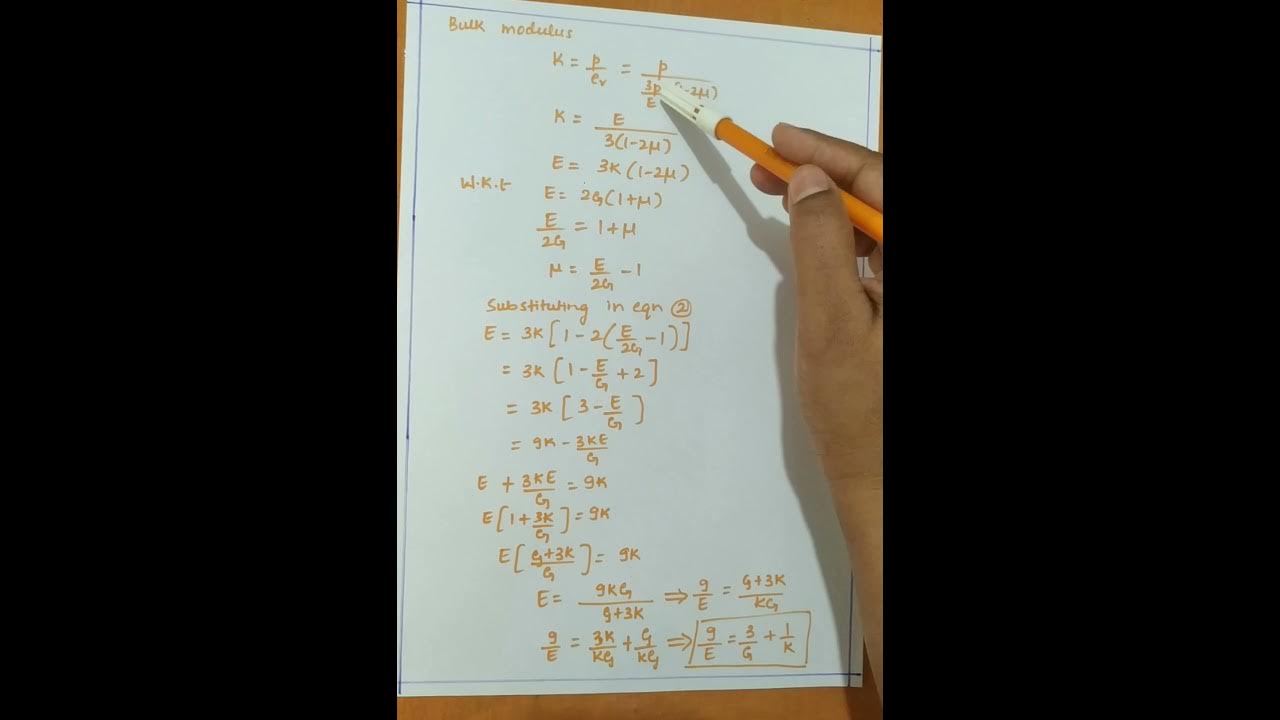 Bulk modulus
K = p/e_v = p/(3p/E (1-2μ))
K = E/(3(1-2μ))
E = 3K(1-2μ)
W.K.t E = 2G(1+μ)
E/2G = 1+μ
μ = E/2G - 1
Substituting in eqn ②
E = 3K[1-2(E/2G -1)]
= 3K[1 - E/G + 2]
= 3K[3 - E/G]
= 9K - 3KE/G
E + 3KE/G = 9K
E[1 + 3K/G] = 9K
E[(G+3K)/G] = 9K
E = 9KG/(G+3K) ⇒ 9/E = (G+3K)/KG
9/E = 3K/KG + G/KG ⇒ 9/E = 3/G + 1/K